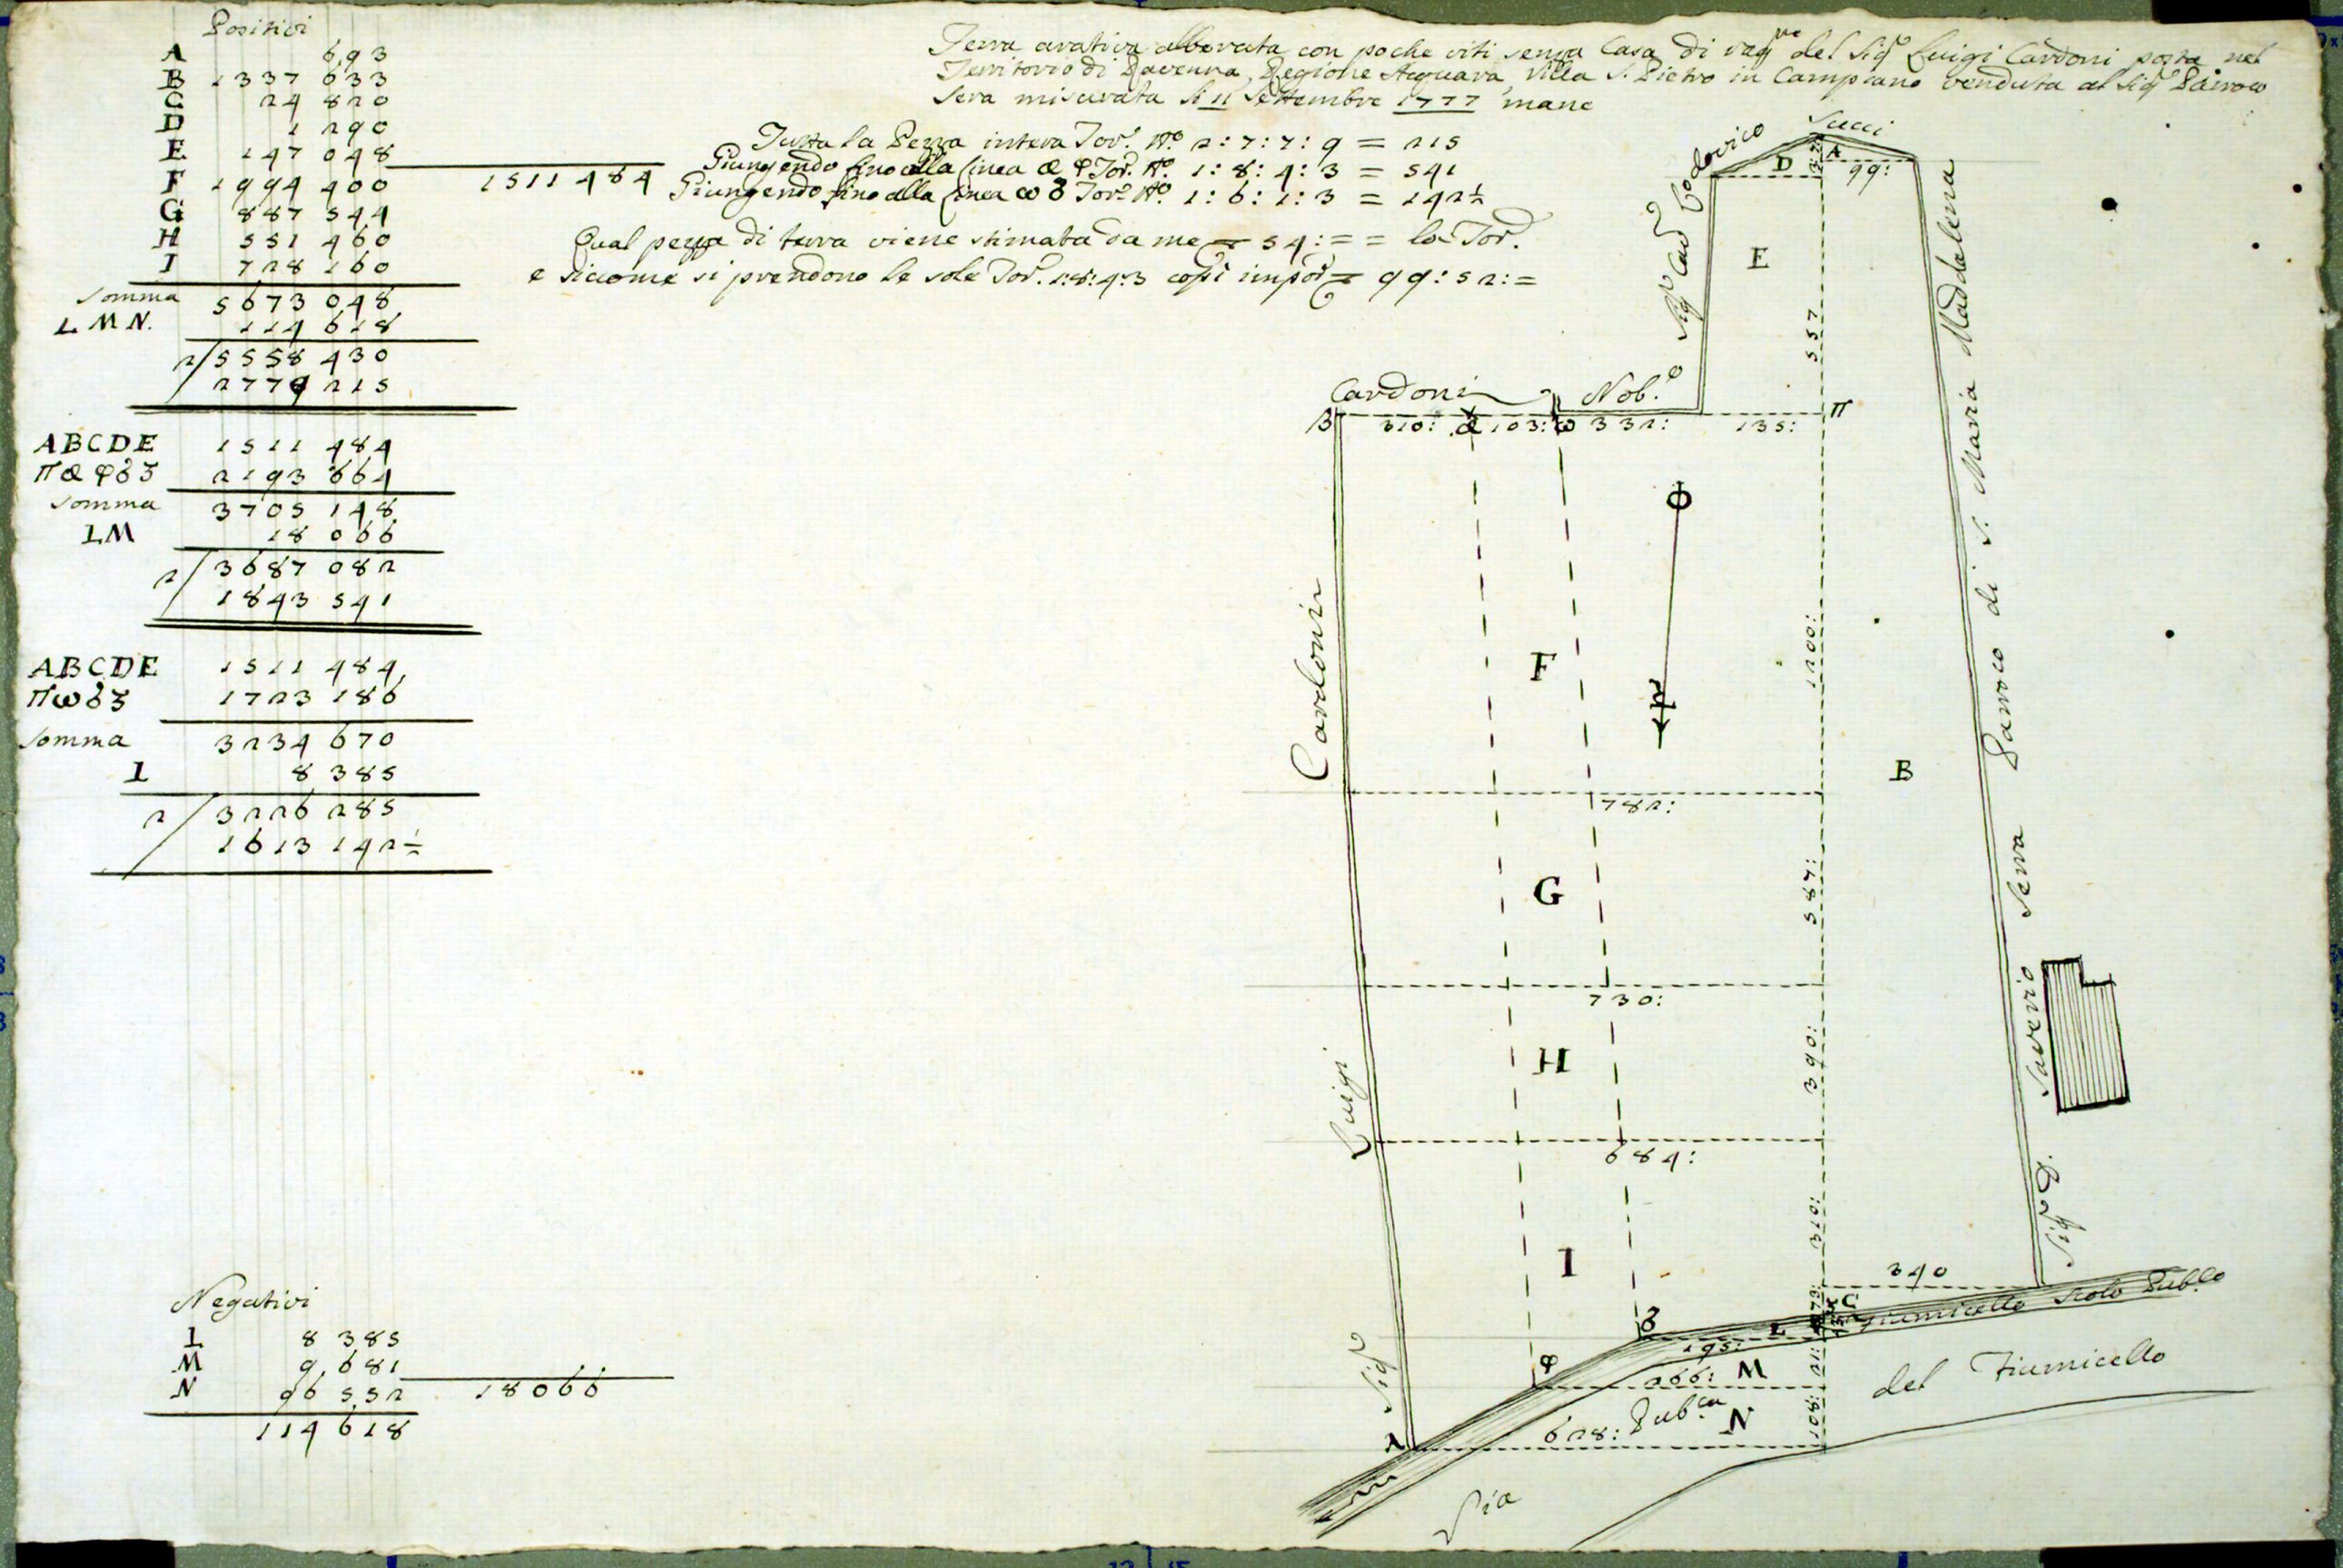 Positivi
A 693
B 1337 633
C 24 820
D 1 290
E 147 048
F 1994 400 1511 484
G 887 544
H 551 460
I 728 160
Somma 5673 048
L M N. 114 618
2/5558 430
2779 215
ABCDE 1511 484
πα φδζ 2193 664
Somma 3705 148
LM 18 066
2/3687 082
1843 541
ABCDE 1511 484
πωδζ 1723 186
Somma 3234 670
L 8 385
2/3226 285
1613 142½
Negativi
L 8 385
M 9,681
N 96 552 18066
114 618
Terra arativa alberata con poche viti senza Casa di rag.ne del Sig.r Luigi Cardoni posta nel
Territorio di Ravenna, Regione Acquara, Villa S. Pietro in Campiano venduta al Sig.r Parroco
Serra misurata li 11 Settembre 1777 mane
Tutta la Pezza intera Tor.e N.o 2:7:7:9 = 215
Giungendo fino alla linea α φ Tor. N.o 1:8:4:3 = 541
Giungendo fino alla linea ω δ Tor.e N.o 1:6:1:3 = 142½
Qual pezza di terra viene stimata da me 54:= = la Tor.
e siccome si prendono le sole Tor. 1:8:4:3 così impor. 99:52:=
Lodovico
Succi
D
A
99:
Sig.r Cav.
E
557
Cardoni
Nob.e
β 310: α 103: ω 332: 135: π
Sig.r D. Saverio Serra Parroco di S. Maria Maddalena
Sig.r Luigi Cardoni
F
1200:
B
782:
G
587:
730:
H
390:
684:
I
310:
340
C
Fiumicello Scolo Pub.co
δ
L
195:
φ
266: M
21:
628: N
108:
λ
Via Pub.ca del Fiumicello